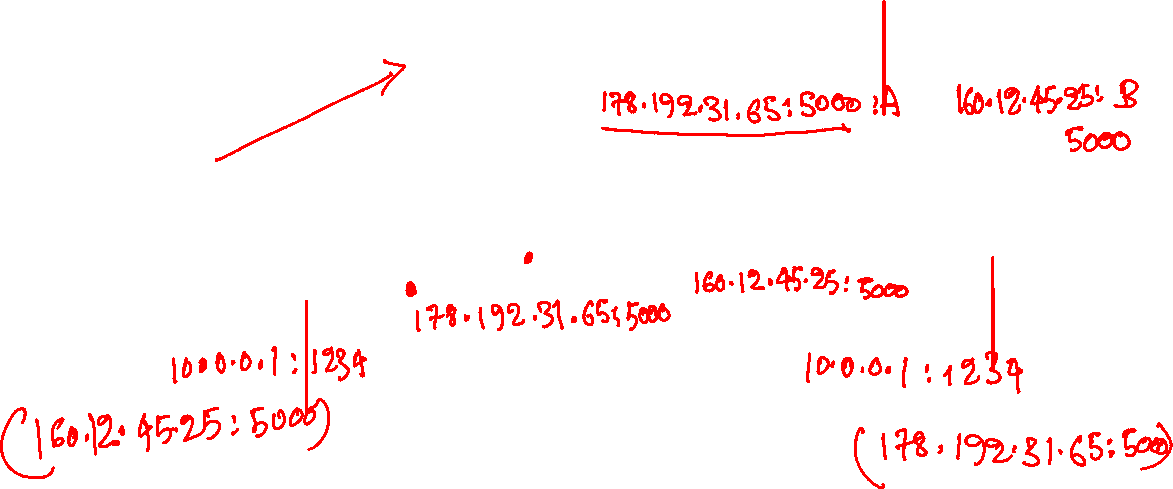 178.192.31.65:5000 :A
160.12.45.25: B
5000
160.12.45.25:5000
178.192.31.65:5000
10.0.0.1:1234
10.0.0.1:1234
(160.12.45.25:5000)
(178.192.31.65:500)